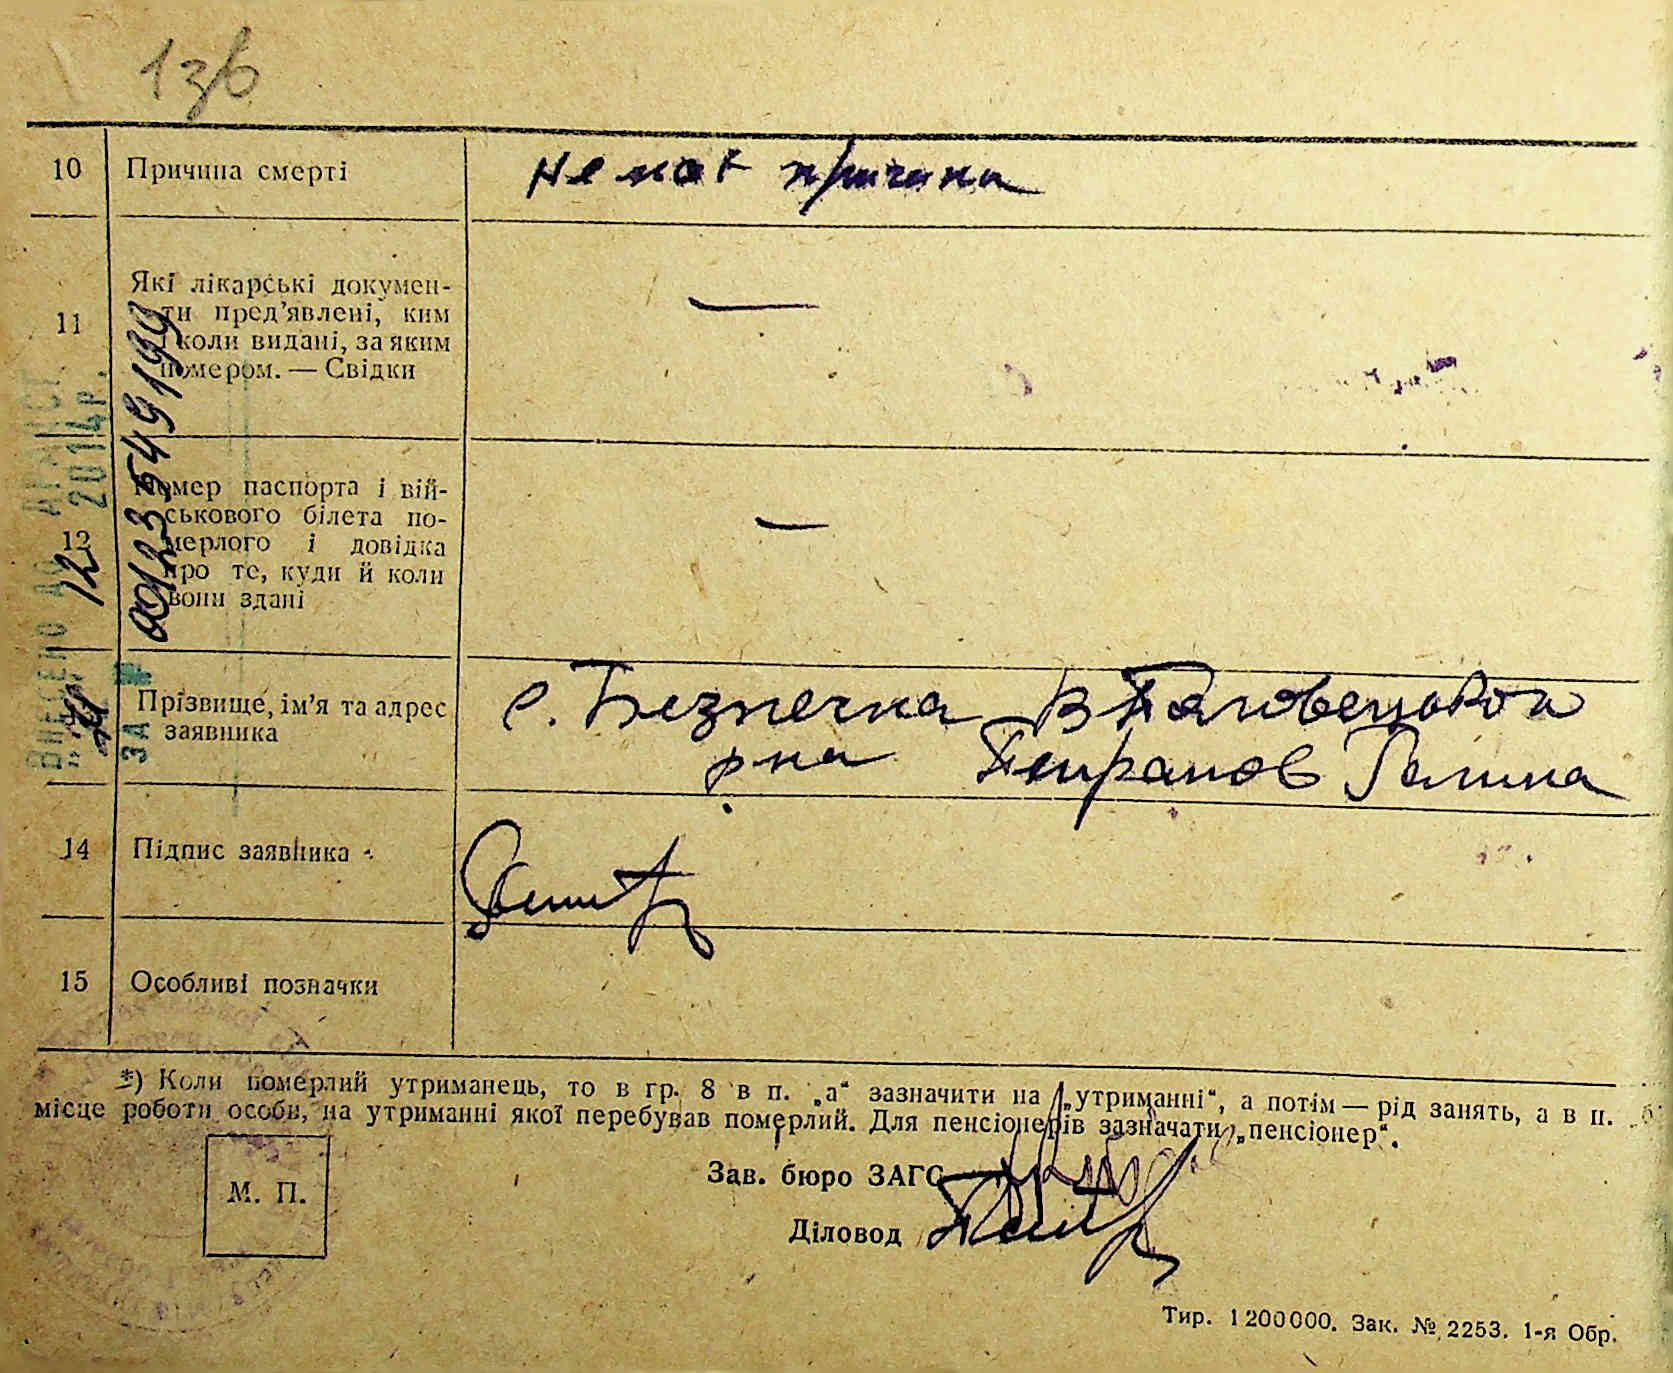 136
10 Причина смерті
11 Які лікарські докумен-
ти пред’явлені, ким
і коли видані, за яким
номером. — Свідки
—
12 Номер паспорта і вій-
ськового білета по-
мерлого і довідка
про те, куди й коли
вони здані
—
00123549199
12 2014р.
ЗА №
Прізвище, ім’я та адрес
заявника
с. Безпечна
р на Галина
14 Підпис заявника
15 Особливі позначки
*) Коли померлий утриманець, то в гр. 8 в п. „а“ зазначити на „утриманні“, а потім — рід занять, а в п.
місце роботи особи, на утриманні якої перебував померлий. Для пенсіонерів зазначати „пенсіонер“.
М. П.
Зав. бюро ЗАГС
Діловод
Тир. 1200000. Зак. № 2253. 1-я Обр.